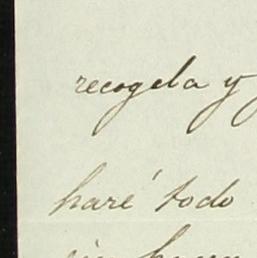 recogela y
haré todo